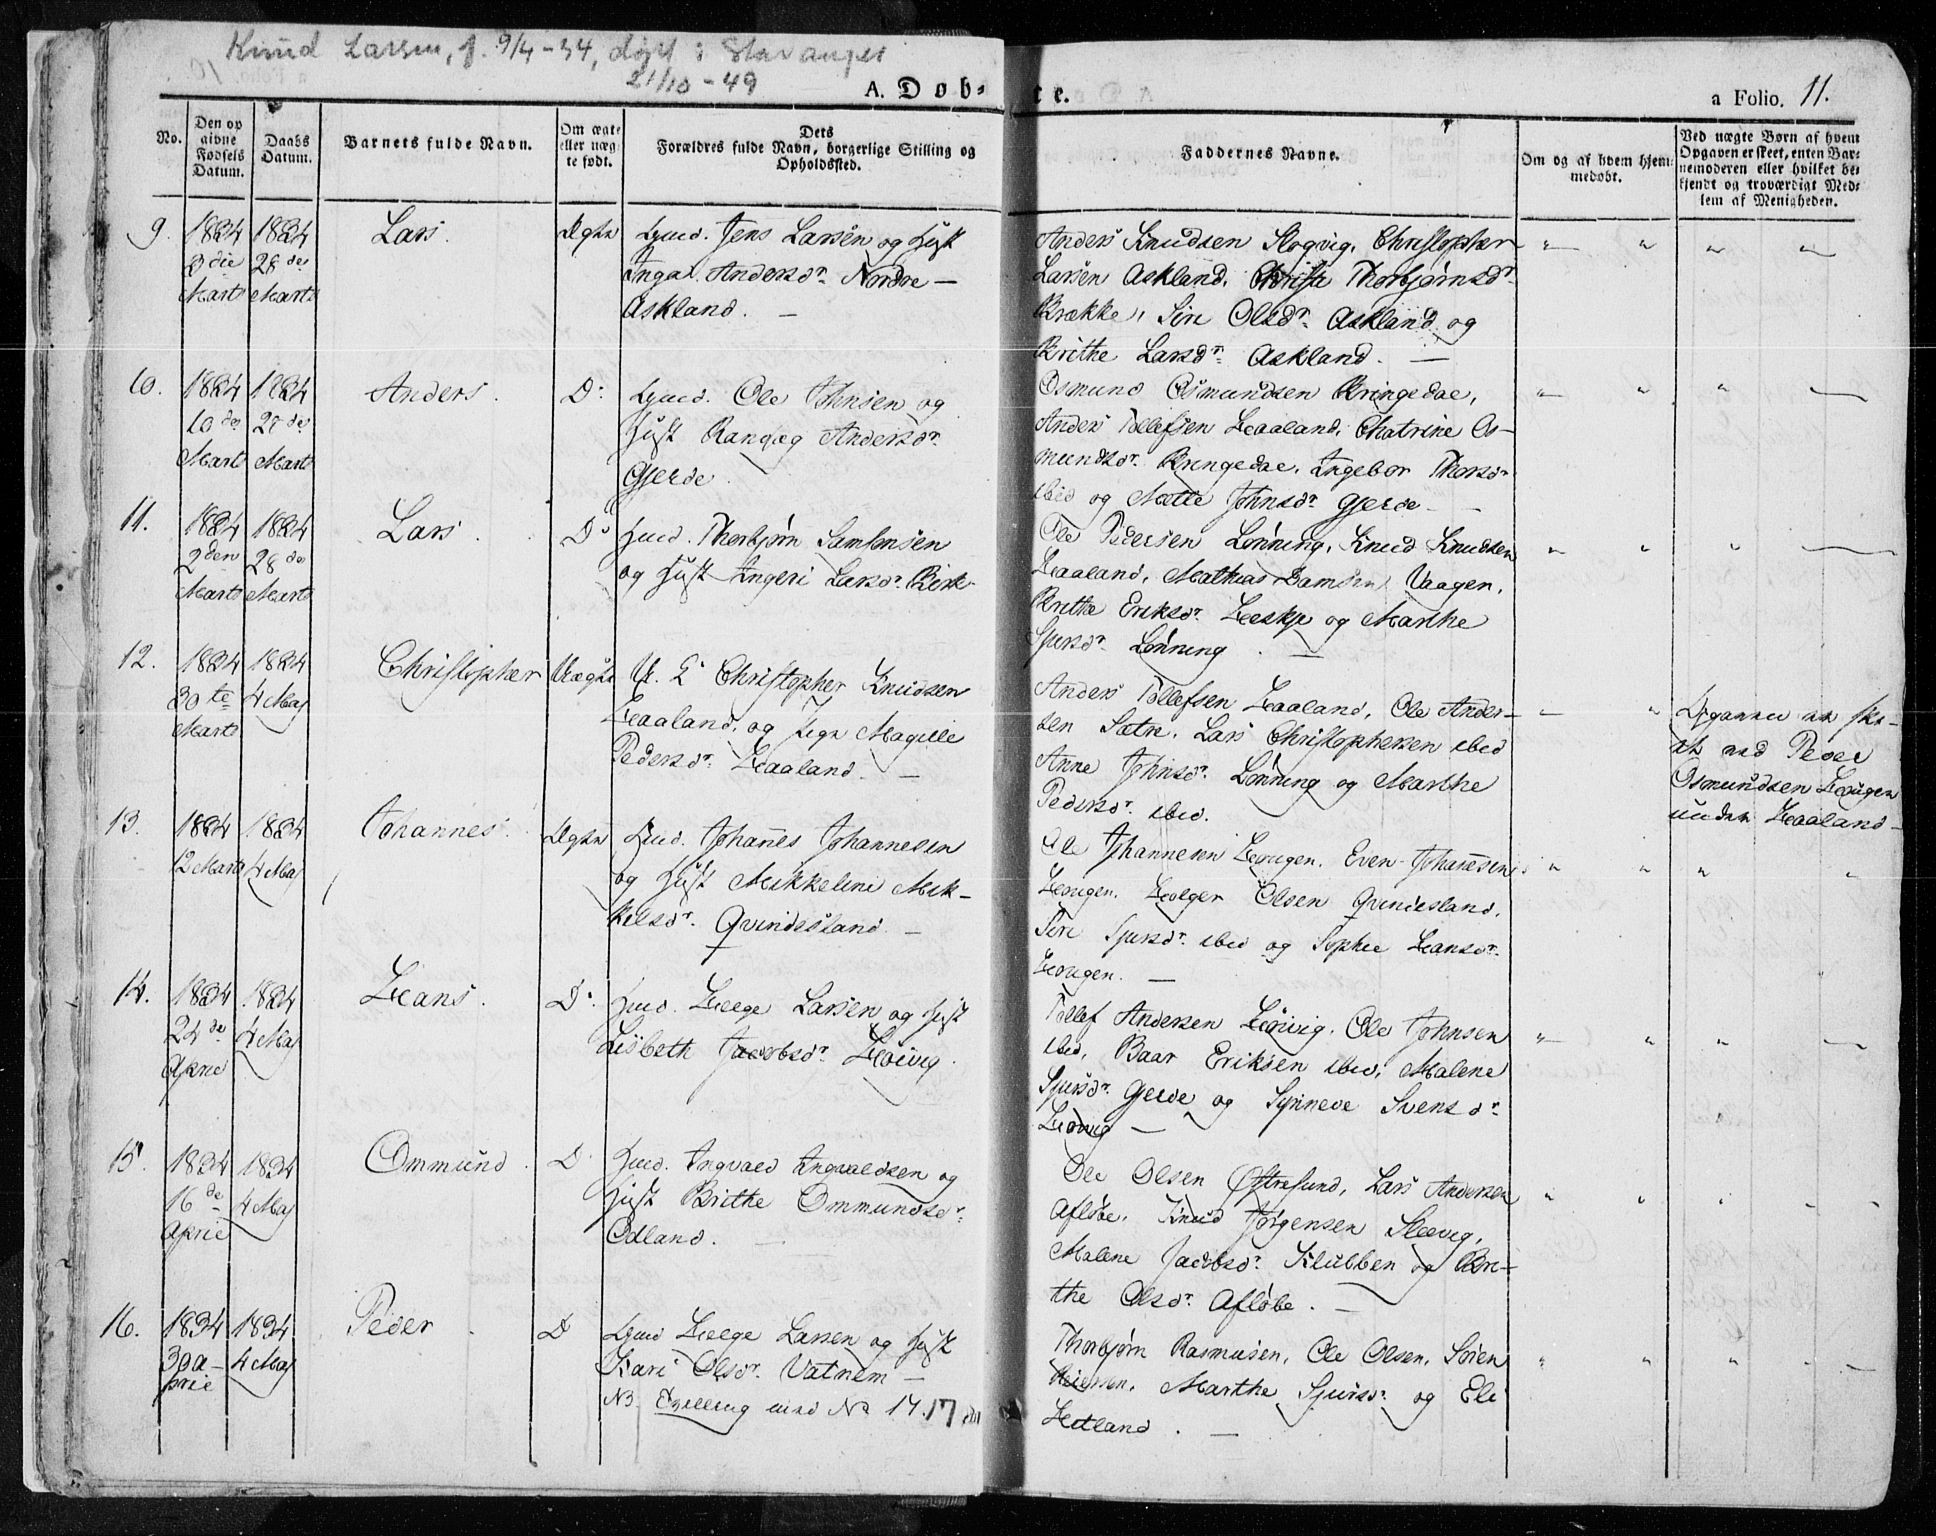 Knud Larsen, f. 9/4-34, død i Stavanger
21/10-49
A. Døbte.
a Folio. 11.
No.
Den op
givne
Fødsels
Datum.
Daabs
Datum.
Barnets fulde Navn.
Om ægte
eller uæg-
te født.
Dets
Forældres fulde Navn, borgerlige Stilling og
Opholdssted.
Faddernes Navne.
Om og af hvem hjem-
medøbt.
Ved uægte Børn af hvem
Opgaven er skeet, enten Bar-
nemoderen eller hvilket be-
kjendt og troværdigt Med-
lem af Menigheden.
9.
1834
3die
Marts
1834
28de
Marts
Lars.
Ægte
Gmd. Jens Larsen og Hust
Ingal. Andersdr. Nordre
Askland.
Anders Knudsen Slogvig, Christopher
Larsen Askland, Christi Thorbjørnsdr
Brække, Siri Olsdr. Askland og
Brithe Larsdr. Askland.
10.
1834
10de
Marts
1834
28de
Marts
Anders.
Do
Gmd. Ole Johnsen og
Hust Randveg Andersdr.
Gjerde.
Osmund Osmundsen Bringedal,
Anders Tollefsen Haaland, Chatrine Os-
mundsdr. Bringedal, Ingebor Thorsdr
ibid og Mette Johnsdr Gjerde
11.
1834
2den
Marts
1834
28de
Marts
Lars.
Do
Huusmd. Thorbjørn Samsonsen
og Hust Ingeri Larsdr. Birk
Ole Pedersen Lønning, Knud Knudsen
Haaland, Mathias Samsen Vaagen,
Brithe Eriksdr. Heskje og Marthe
Sjursdr. Lønning.
12.
1834
30te
Marts
1834
4 Maj
Christopher
Uægte
Christopher Knudsen
Haaland, og Pige Magille
Pedersdr. Haaland.
Anders Tollefsen Haaland, Ole Ander-
sen Sætre, Lars Christophersen ibid
Anne Johnsdr. Lønning og Marthe
Pedersdr. ibid.
Opgaven er ske-
et ved Peder
Osmundsen Hougen
under Haaland
13.
1834
12 Marts
1834
4 Maj
Johannes.
Ægte
Gmd. Johanes Johannesen
og Hust Mikkeline Mik-
kelsdr. Qvindesland.
Ole Johannesen Hougen, Even Johanesen
Hougen, Holger Olsen Qvindesland,
Siri Sjursdr. ibid og Sophie Hansdr.
Hougen.
14.
1834
24de
April
1834
4 Maj
Hans.
Do
Huusmd. Helge Larsen og Hust
Lisbeth Jacobsdr. Høivig.
Tollef Andersen Høivig, Ole Johnsen
ibid, Baar Eriksen ibid, Malene
Sjursdr. Gjerde og Synneve Svensdr.
Høivig
15.
1834
16de
April
1834
4 Maj
Ommund.
Do
Huusmd. Ingvald Ingvaldsen og
Hust Brithe Ommundsdr.
Odland.
Ole Olsen Østresund, Lars Andersen
Afløbe, Knud Jørgensen Slævig,
Malene Jacobsdr. Klubben og Bri-
the Olsdr. Afløbe.
16.
1834
30 A-
pril
1834
4 Maj
Peder
Do
Gmd Helge Larsen og Hust
Kari Olsdr. Vatnem
NB. Tvilling med No 17. 17
Thorbjørn Rasmusen, Ole Olsen, Sören
Marthe Sjursdr. og Eli
Hetland.